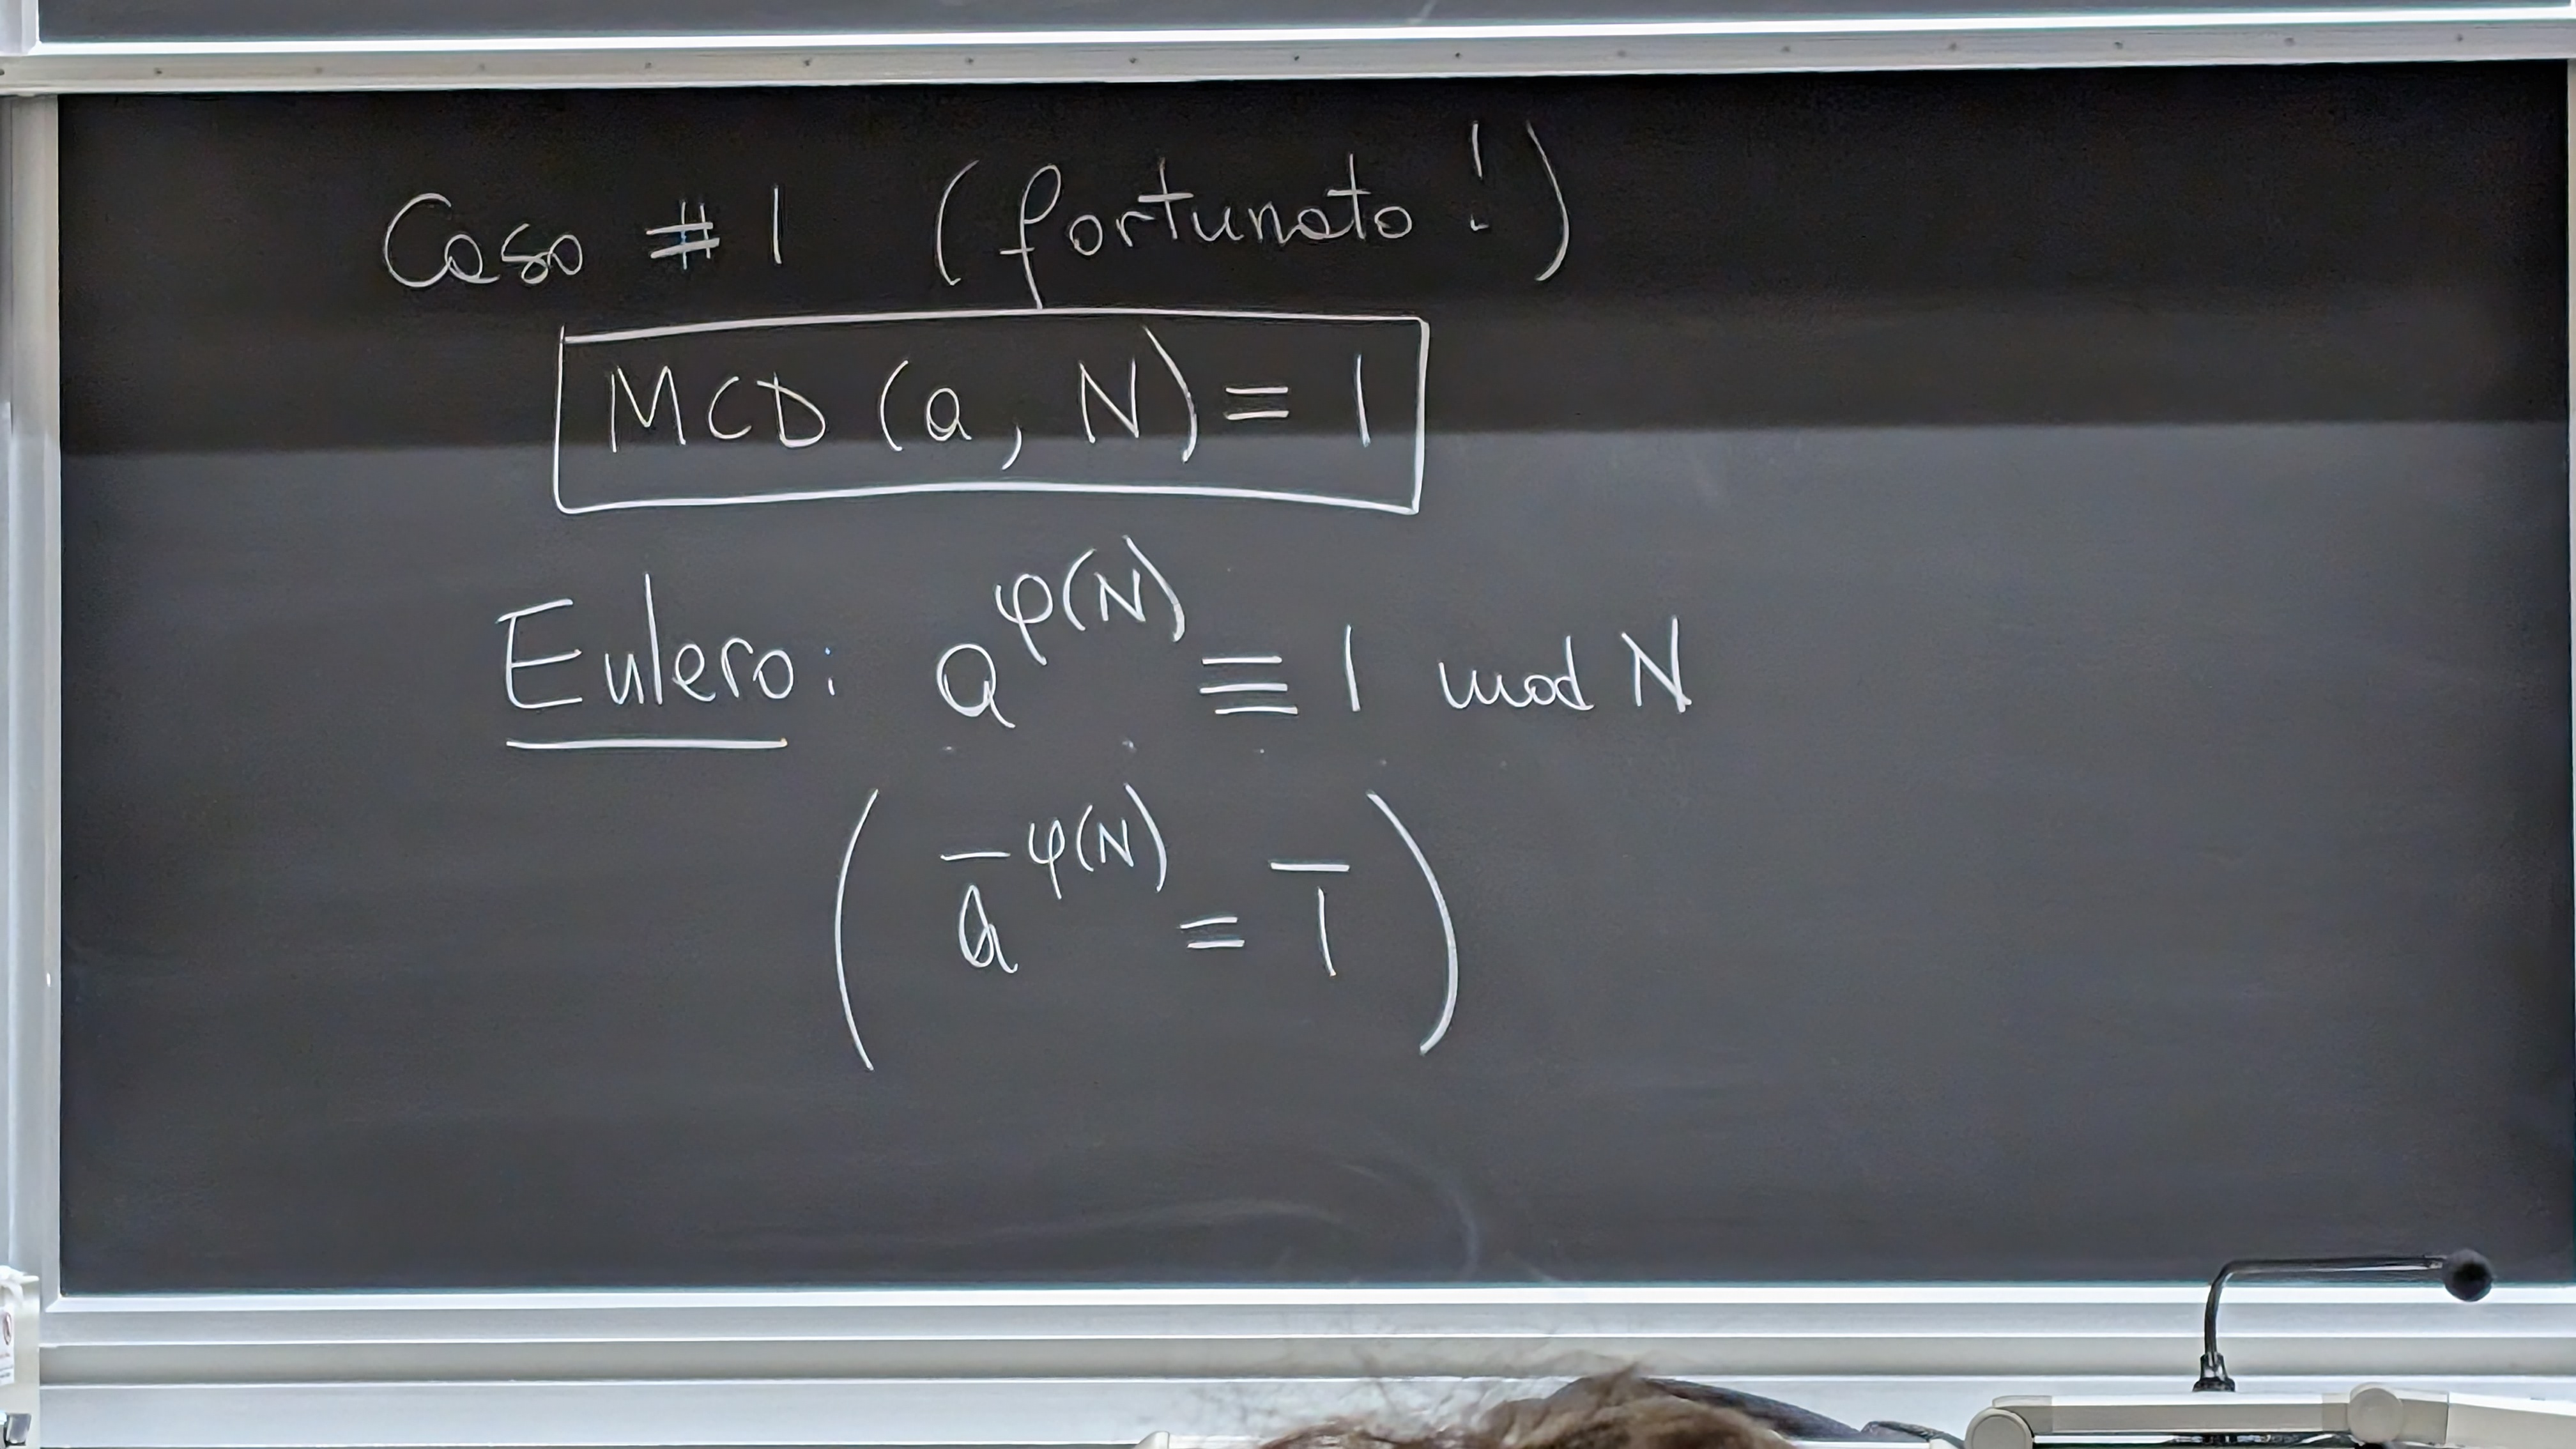 Caso # 1 (fortunato!)
MCD (a, N) = 1
Eulero: a^φ(N) ≡ 1 mod N
( a̅^φ(N) = 1̅ )